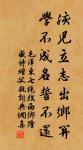 孩兒立志出鄉關
學不成名誓不還
毛澤東七絕改西鄉隆
盛詩贈父親詞典